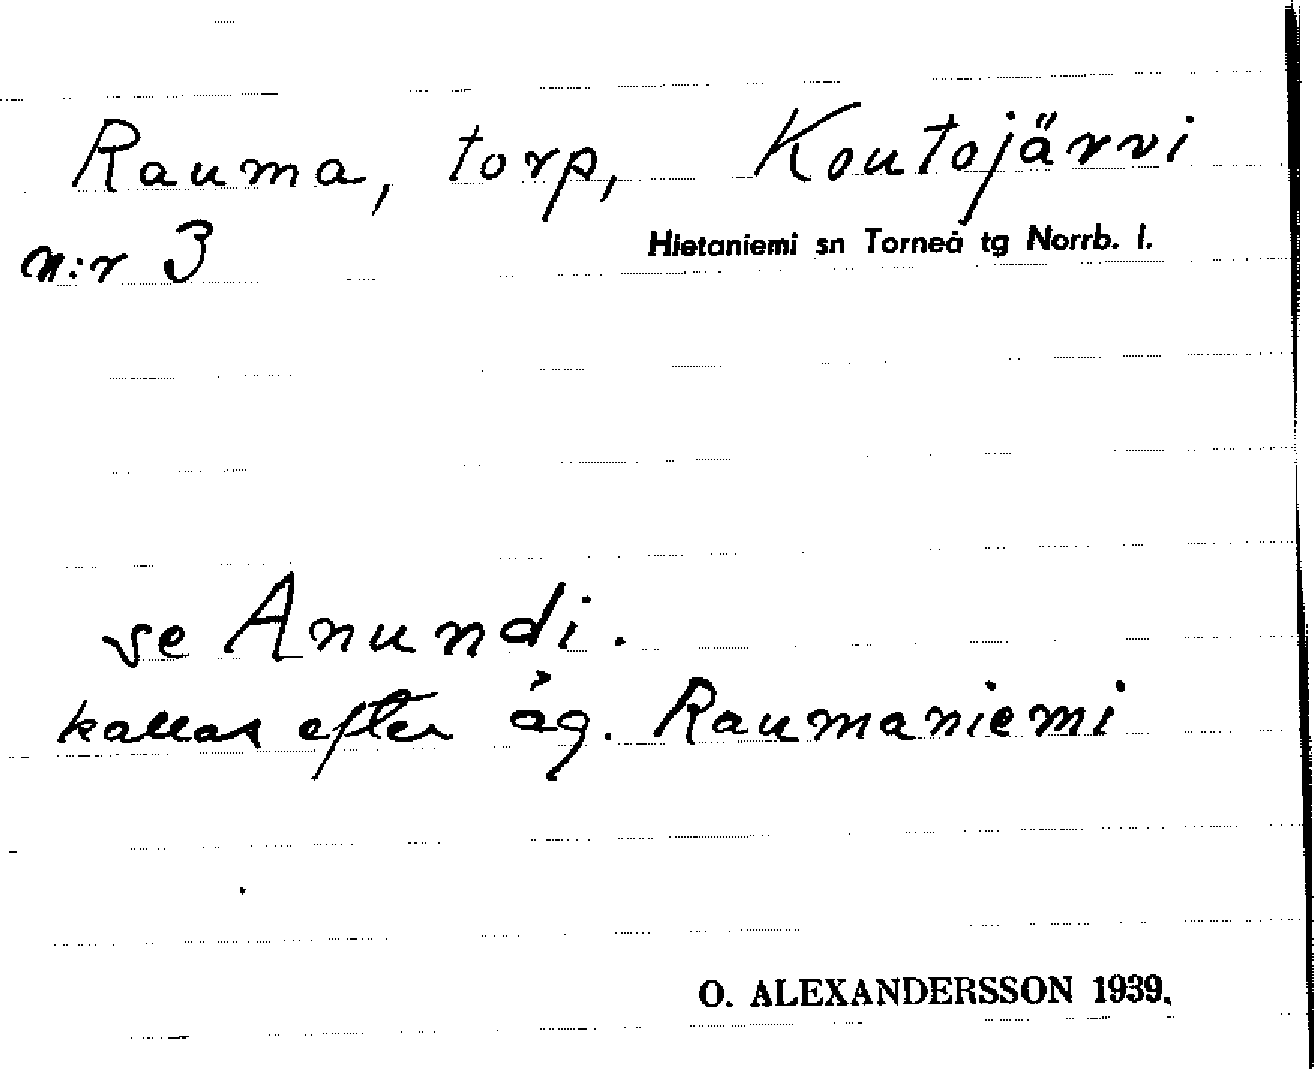 Rauma, torp, Koutojärvi
n:r 3 Hietaniemi sn Torneå tg Norrb. l.
se Anundi.
kallas efter äg. Raumaniemi
O. ALEXANDERSSON 1939.